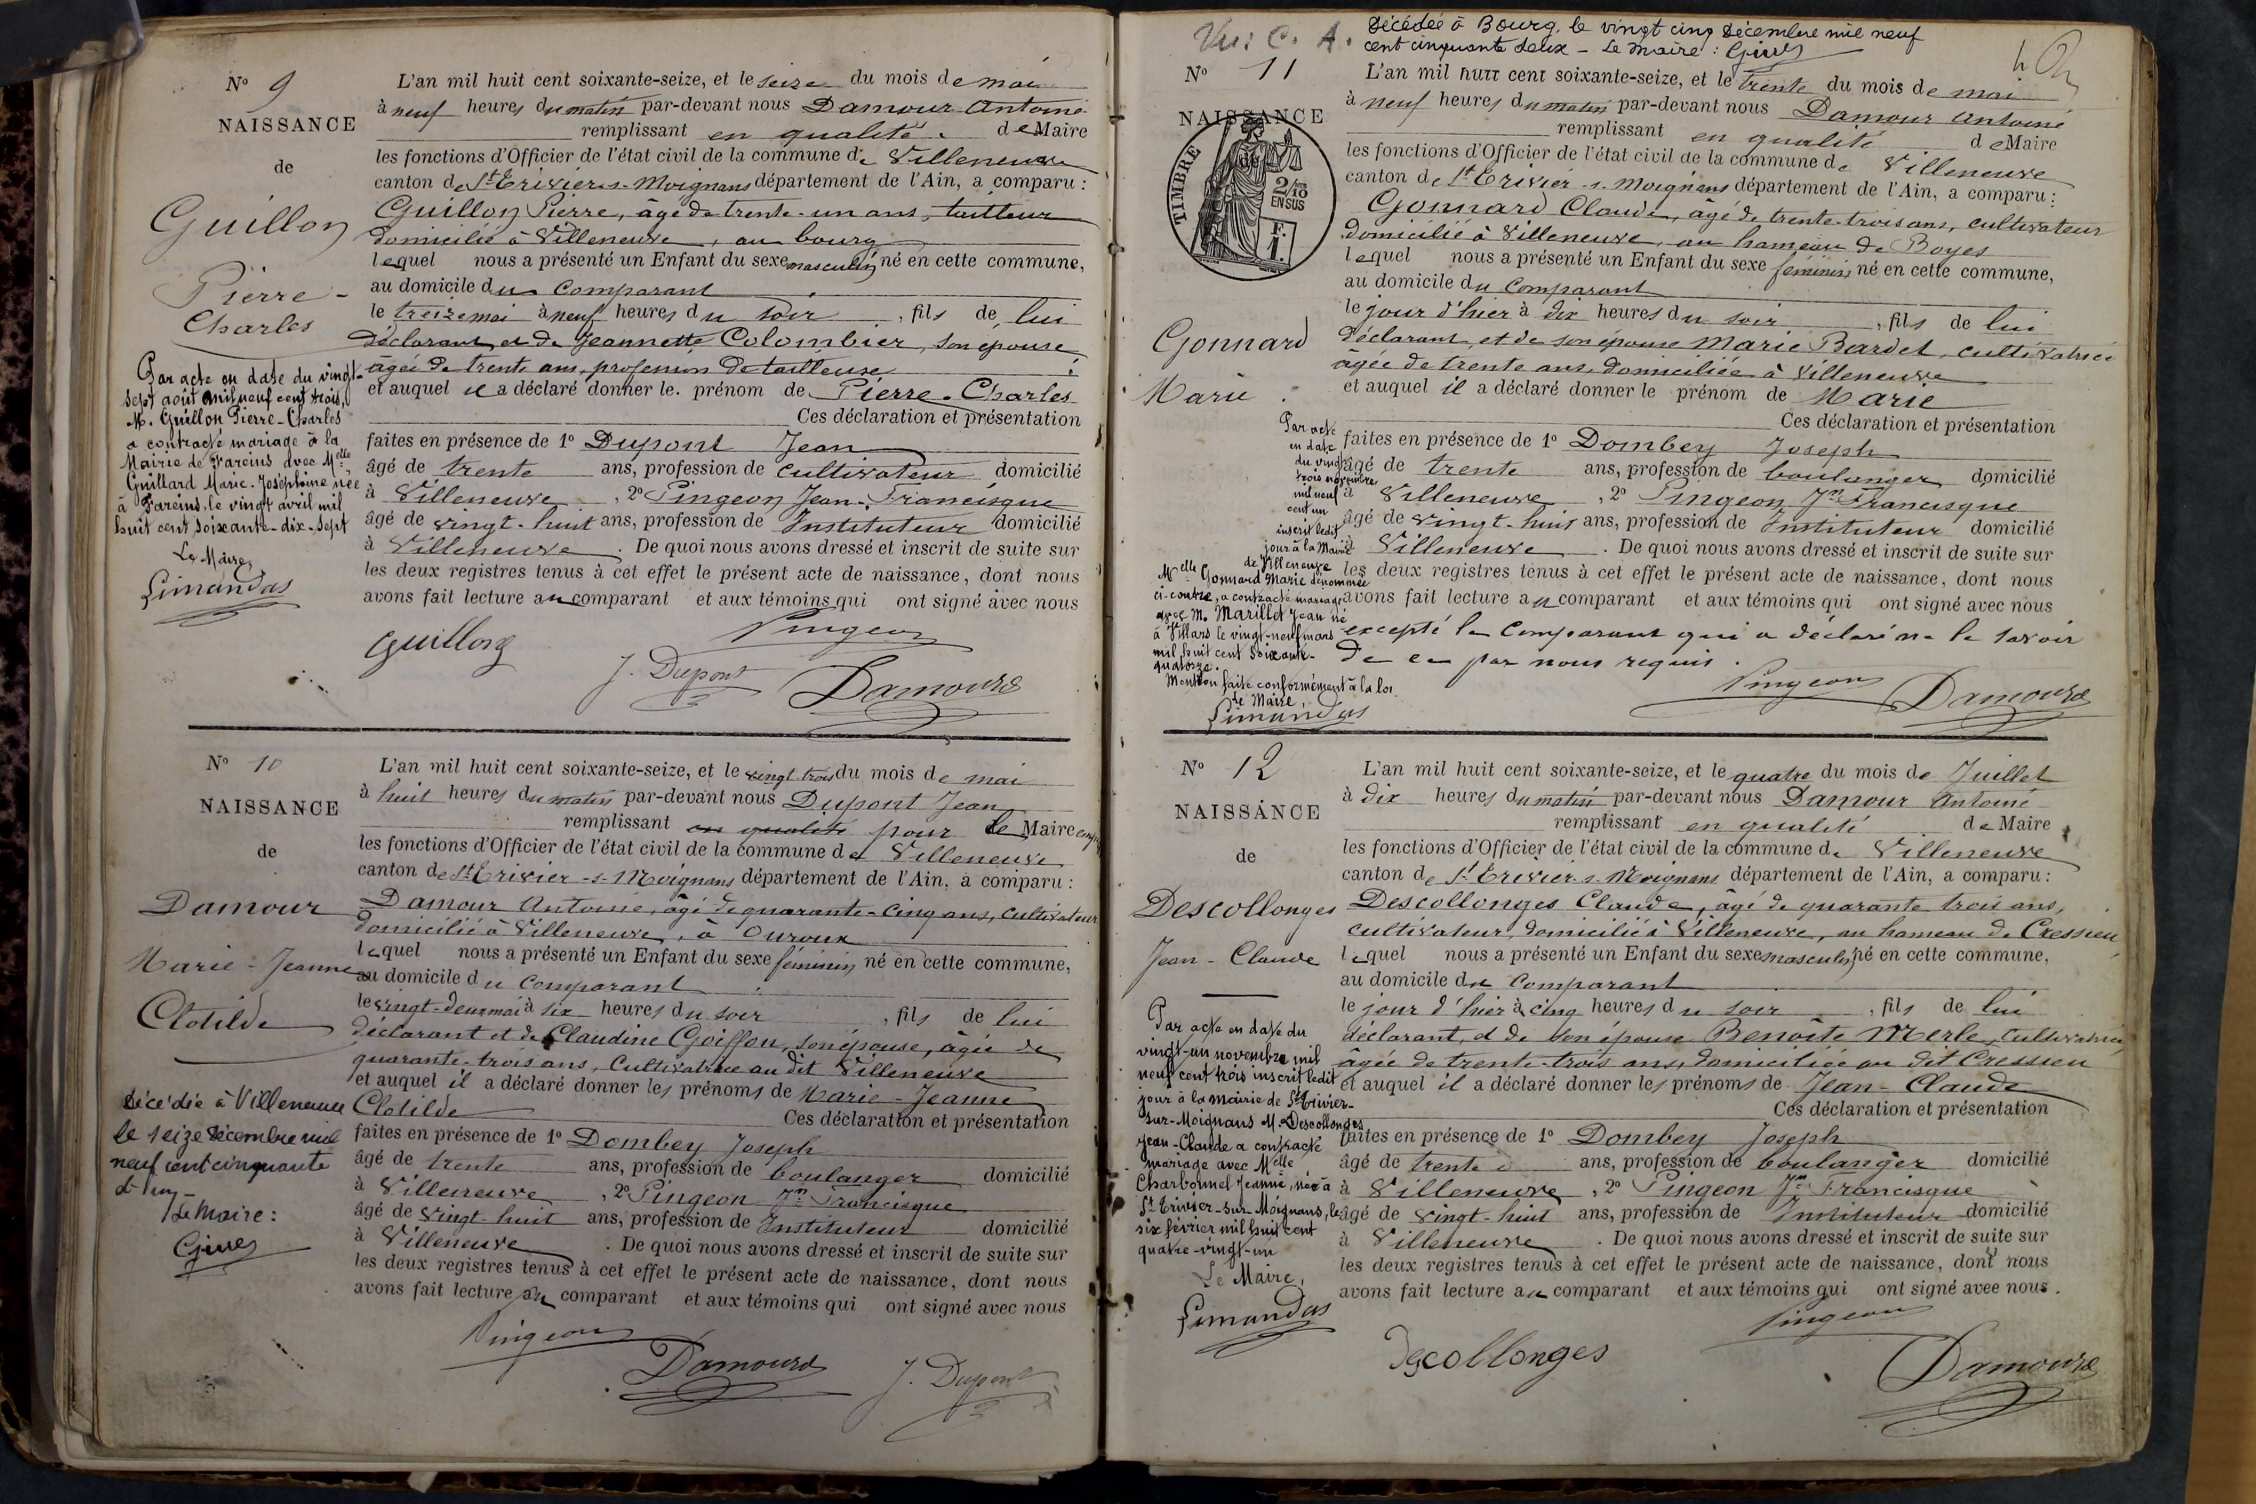 N° 9
NAISSANCE
de
Guillon
Pierre-
Charles
Par acte en date du vingt-
sept août mil neuf cent trois,
M. Guillon Pierre-Charles
a contracté mariage à la
Mairie de Fareins avec Melle
Guillard Marie-Joséphine née
à Fareins, le vingt avril mil
huit cent soixante-dix-sept
Le Maire,
Limandas
L'an mil huit cent soixante-seize, et le seize du mois de mai
à neuf heures du matin par-devant nous Damour Antoine
remplissant en qualité de Maire
les fonctions d'Officier de l'état civil de la commune de Villeneuve
canton de St Trivier-s-Moignans département de l'Ain, a comparu :
Guillon Pierre, âgé de trente-un ans, tailleur
domicilié à Villeneuve, au bourg
lequel nous a présenté un Enfant du sexe masculin né en cette commune,
au domicile du comparant
le treize mai à neuf heures du soir , fils de lui
déclarant et de Jeannette Colombier, son épouse,
âgée de trente ans, profession de tailleuse
et auquel il a déclaré donner le. prénom de Pierre-Charles
Ces déclaration et présentation
faites en présence de 1° Dupont Jean
âgé de trente ans, profession de cultivateur domicilié
à Villeneuve , 2° Pingeon Jean-Francisque
âgé de vingt-huit ans, profession de Instituteur domicilié
à Villeneuve . De quoi nous avons dressé et inscrit de suite sur
les deux registres tenus à cet effet le présent acte de naissance, dont nous
avons fait lecture au comparant et aux témoins qui ont signé avec nous
Guillon
Pingeon
J. Dupont
Damour
N° 10
NAISSANCE
de
Damour
Marie-Jeanne
Clotilde
Décédée à Villeneuve
le seize décembre mil
neuf cent cinquante
et un
Le Maire :
L'an mil huit cent soixante-seize, et le vingt-trois du mois de mai
à huit heures du matin par-devant nous Dupont Jean
remplissant en qualité pour le Maire
les fonctions d'Officier de l'état civil de la commune de Villeneuve
canton de St Trivier-s-Moignans département de l'Ain, a comparu :
Damour Antoine, âgé de quarante-cinq ans, cultivateur
domicilié à Villeneuve, à Ouroux
lequel nous a présenté un Enfant du sexe féminin né en cette commune,
au domicile du comparant
le vingt-deux mai à six heures du soir , fils de lui
déclarant et de Claudine Goiffon, son épouse, âgée de
quarante-trois ans, cultivatrice au dit Villeneuve
et auquel il a déclaré donner les prénoms de Marie-Jeanne
Clotilde Ces déclaration et présentation
faites en présence de 1° Dombey Joseph
âgé de trente ans, profession de boulanger domicilié
à Villeneuve , 2° Pingeon Jn Francisque
âgé de vingt-huit ans, profession de Instituteur domicilié
à Villeneuve . De quoi nous avons dressé et inscrit de suite sur
les deux registres tenus à cet effet le présent acte de naissance, dont nous
avons fait lecture au comparant et aux témoins qui ont signé avec nous
Pingeon
Damour
J. Dupont
Vu : C. A.
Décédée à Bourg, le vingt cinq décembre mil neuf
cent cinquante deux - Le Maire :
N° 11
NAISSANCE
de
TIMBRE
2/10 EN SUS
F. 1.
Gonnard
Marie
Par acte
en date
du vingt
trois novembre
mil neuf
cent un
inscrit ledit
jour à la Mairie
de Villeneuve
Melle Gonnard Marie dénommée
ci-contre, a contracté mariage
avec M. Marillet Jean né
à Villars le vingt-neuf mars
mil huit cent soixante-
quatorze.
Mention faite conformément à la loi
Le Maire,
Limandas
L'an mil huit cent soixante-seize, et le trente du mois de mai
à neuf heures du matin par-devant nous Damour Antoine
remplissant en qualité de Maire
les fonctions d'Officier de l'état civil de la commune de Villeneuve
canton de St Trivier-s-Moignans département de l'Ain, a comparu :
Gonnard Claude, âgé de trente-trois ans, cultivateur
domicilié à Villeneuve, au hameau de Boyes
lequel nous a présenté un Enfant du sexe féminin né en cette commune,
au domicile du comparant
le jour d'hier à dix heures du soir , fils de lui
déclarant et de son épouse Marie Bardet, cultivatrice
âgée de trente ans, domiciliée à Villeneuve
et auquel il a déclaré donner le prénom de Marie
Ces déclaration et présentation
faites en présence de 1° Dombey Joseph
âgé de trente ans, profession de boulanger domicilié
à Villeneuve , 2° Pingeon Jn Francisque
âgé de vingt-huit ans, profession de Instituteur domicilié
à Villeneuve . De quoi nous avons dressé et inscrit de suite sur
les deux registres tenus à cet effet le présent acte de naissance, dont nous
avons fait lecture au comparant et aux témoins qui ont signé avec nous
excepté le comparant qui a déclaré ne le savoir
de ce par nous requis.
Pingeon
Damour
N° 12
NAISSANCE
de
Descollonges
Jean-Claude
Par acte en date du
vingt-un novembre mil
neuf cent trois inscrit ledit
jour à la mairie de St Trivier-
sur-Moignans M. Descollonges
Jean-Claude a contracté
mariage avec Melle
Charbonnel Jeanne, née à
St Trivier-sur-Moignans, le
six février mil huit cent
quatre-vingt-un
Le Maire,
Limandas
L'an mil huit cent soixante-seize, et le quatre du mois de Juillet
à dix heures du matin par-devant nous Damour Antoine
remplissant en qualité de Maire
les fonctions d'Officier de l'état civil de la commune de Villeneuve
canton de St Trivier-s-Moignans département de l'Ain, a comparu :
Descollonges Claude, âgé de quarante trois ans,
cultivateur, domicilié à Villeneuve, au hameau de Cressieu,
lequel nous a présenté un Enfant du sexe masculin né en cette commune,
au domicile du comparant
le jour d'hier à cinq heures du soir , fils de lui
déclarant, et de son épouse Benoîte Merle, cultivatrice,
âgée de trente-trois ans, domiciliée au dit Cressieu
et auquel il a déclaré donner les prénoms de Jean-Claude
Ces déclaration et présentation
faites en présence de 1° Dombey Joseph
âgé de trente ans, profession de boulanger domicilié
à Villeneuve , 2° Pingeon Jn Francisque
âgé de vingt-huit ans, profession de Instituteur domicilié
à Villeneuve . De quoi nous avons dressé et inscrit de suite sur
les deux registres tenus à cet effet le présent acte de naissance, dont nous
avons fait lecture au comparant et aux témoins qui ont signé avec nous.
Pingeon
Descollonges
Damour